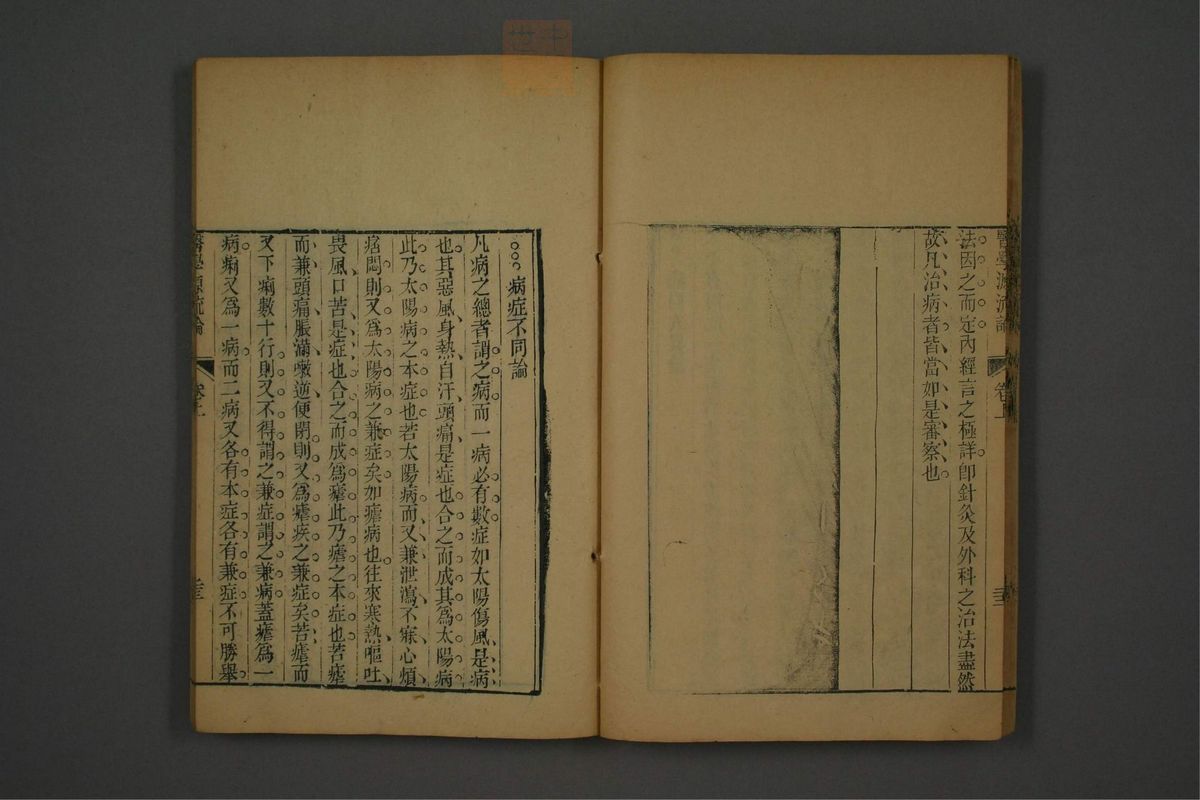 醫學源流論 卷上
法因之而定內經言之極詳卽針灸及外科之治法盡然
故凡治病者皆當如是審察也
病症不同論
凡病之總者謂之病而一病必有數症如太陽傷風是病
也其惡風身熱自汗頭痛是症也合之而成其爲太陽病
此乃太陽病之本症也若太陽病而又兼泄瀉不寐心煩
痞悶則又爲太陽病之兼症矣如瘧病也往來寒熱嘔吐
畏風口苦是症也合之而成爲瘧此乃瘧之本症也若瘧
而兼頭痛脹滿嗽逆便閉則又爲瘧疾之兼症矣若瘧而
又下痢數十行則又不得謂之兼症謂之兼病蓋瘧爲一
病痢又爲一病而二病又各有本症各有兼症不可勝舉
醫學源流論 卷上